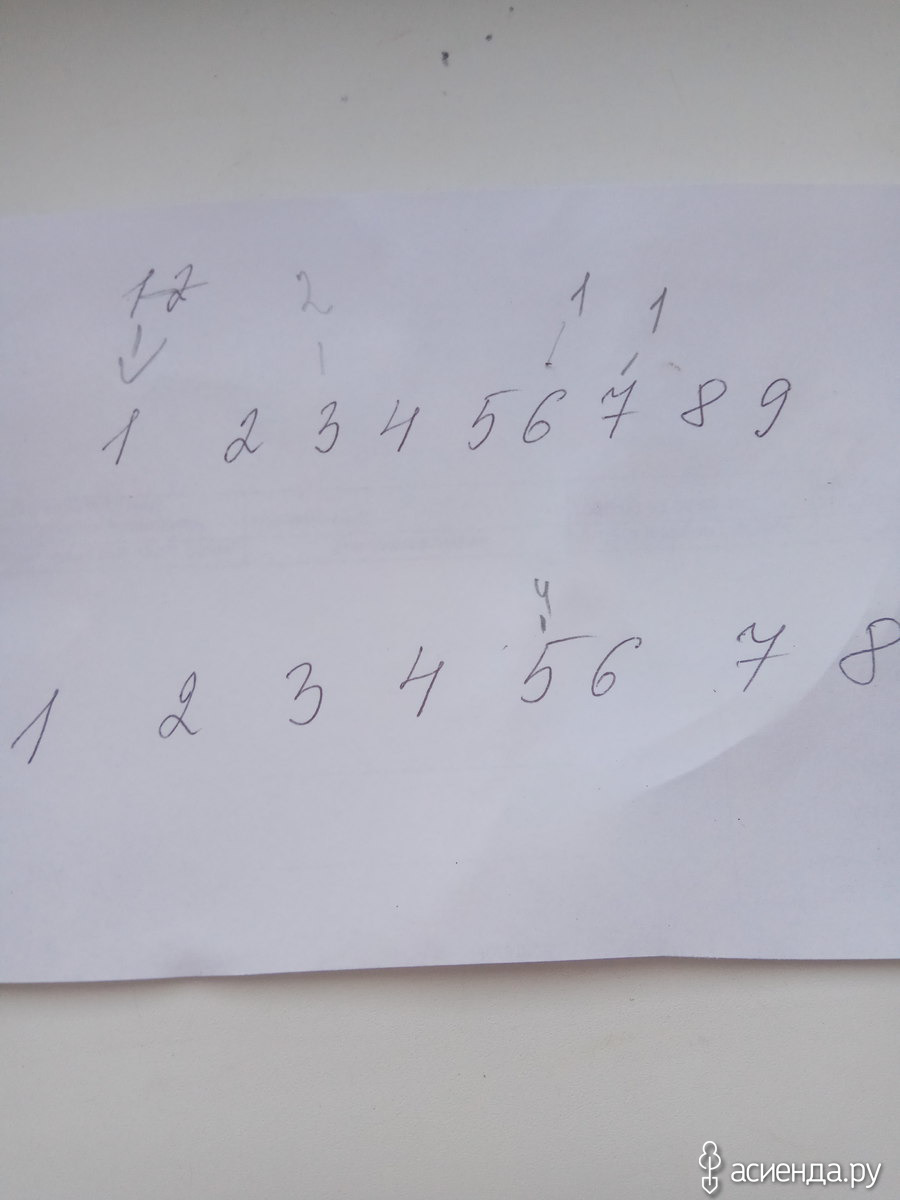 12 2 1 1
1 2 3 4 5 6 7 8 9
4
1 2 3 4 5 6 7 8
асиенда.ру